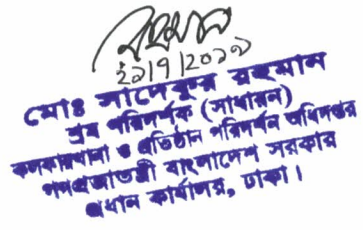 রহমান
২১/৭/২০১৯
মোঃ সাদেকুর রহমান
শ্রম পরিদর্শক (সাধারন)
কলকারখানা ও প্রতিষ্ঠান পরিদর্শন অধিদপ্তর
গণপ্রজাতন্ত্রী বাংলাদেশ সরকার
প্রধান কার্যালয়, ঢাকা।